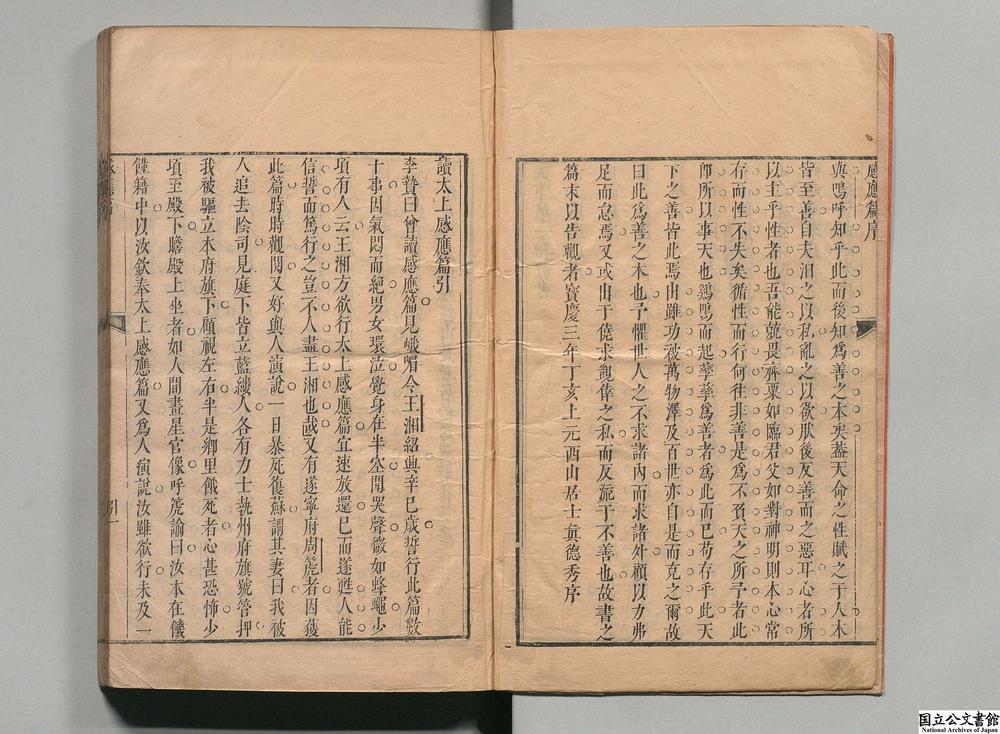 感應篇序
眞嗚呼知乎此而後知爲善之本矣蓋天命之性賦之于人本
皆至善自夫汨之以私亂之以欲肰後反善而之惡耳心者所
以主乎性者也吾能兢畏齋栗如臨君父如對神明則本心常
存而性不失矣循性而行何往非善是爲不負天之所予者此
卽所以事天也鷄鳴而起孳孳爲善者爲此而已苟存乎此天
下之善皆此焉出雖功被萬物澤及百世亦自是而克之爾故
曰此爲善之本也予懼世人之不求諸內而求諸外顧以力弗
足而怠焉又或出于僥求覬倖之私而反流于不善也故書之
篇末以告觀者寶慶三年丁亥上元西山居士眞德秀序
讀太上感應篇引
李贄曰曾讀感應篇見峨嵋令王湘紹興辛巳歲誓行此篇數
十事因氣悶而絕男女環泣覺身在半空聞哭聲微如蜂蠅少
項有人云王湘方欲行太上感應篇宜速放還已而遂甦人能
信誓而篤行之豈不人盡王湘也哉又有遂寧府周箎者因獲
此篇時時觀閱又好與人演說一日暴死復蘇謂其妻曰我被
人追去陰司見庭下皆立藍縷人各有力士執州府旗號管押
我被驅立本府旗下顧視左右半是鄉里餓死者心甚恐怖少
項至殿下瞻殿上坐者如人間畫星官像呼箎諭曰汝本在饑
饉籍中以汝欽奉太上感應篇又爲人演說汝雖欲行未及一
引一
国立公文書館
National Archives of Japan